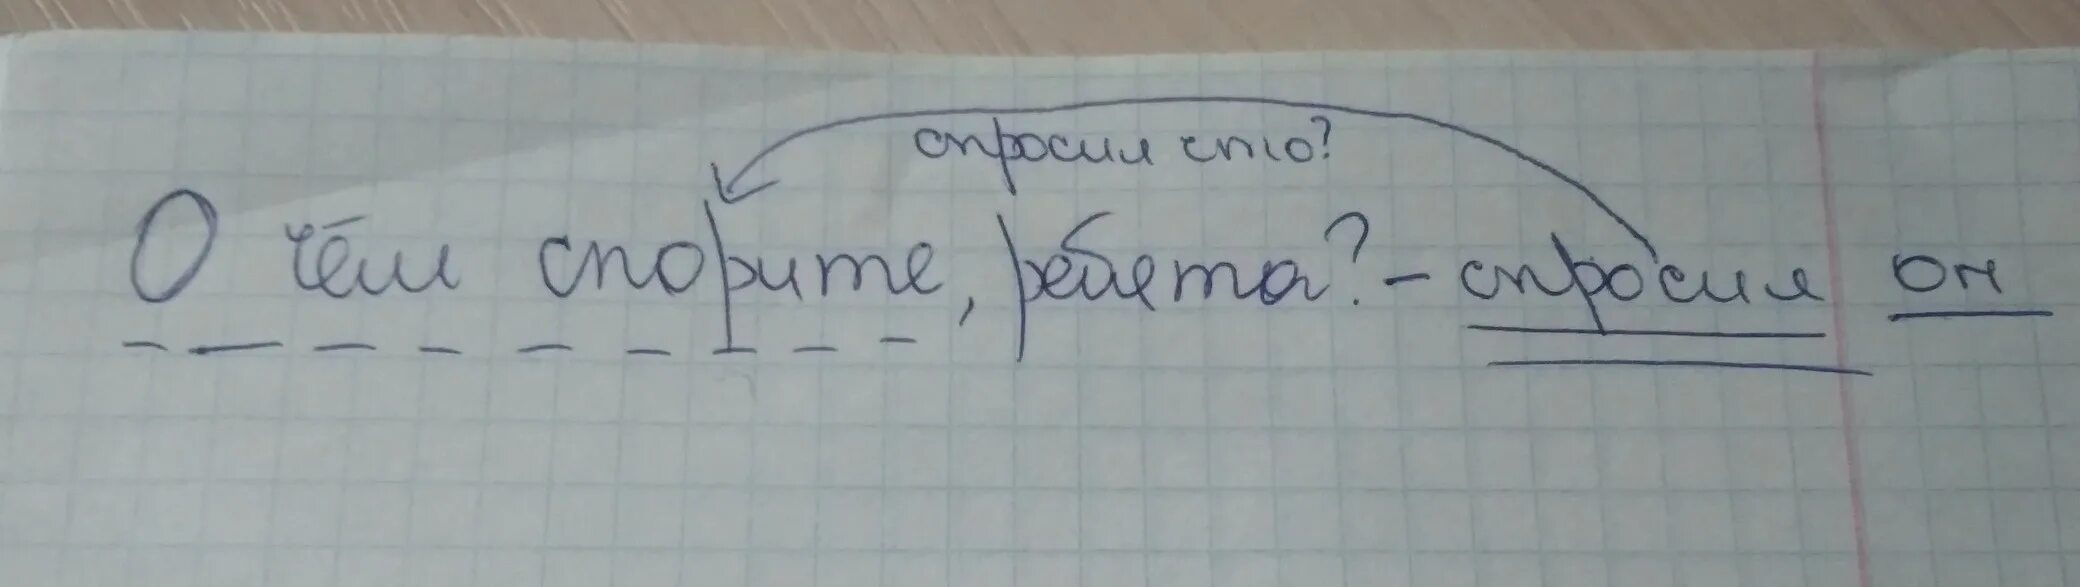 спросил что?
О чём спорите, ребята? - спросил он